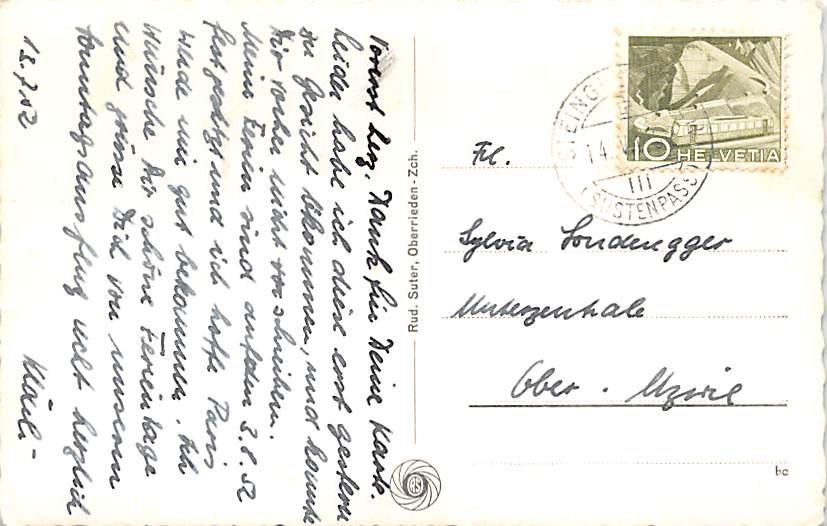 13.7.52
Vorerst herz. Dank für Deine Karte.
Leider habe ich diese erst gestern
zu Gesicht bekommen, und konnte
Dir vorher nicht vorschreiben.
Meine Ferien sind auf den 3.8.52
festgesetzt und ich hoffe Paris
werde mir gut bekommen. Ich
wünsche Dir schöne Ferientage
und grüsse Dich von unserem
Sonntagsausflug recht herzlich
Kläli
Rud. Suter, Oberrieden-Zch.
RS
10 HELVETIA
STEING
14.
III
(SUSTENPASS)
Frl.
Sylvia Sonderegger
Unterzentrale
Ober-Uzwil
bc